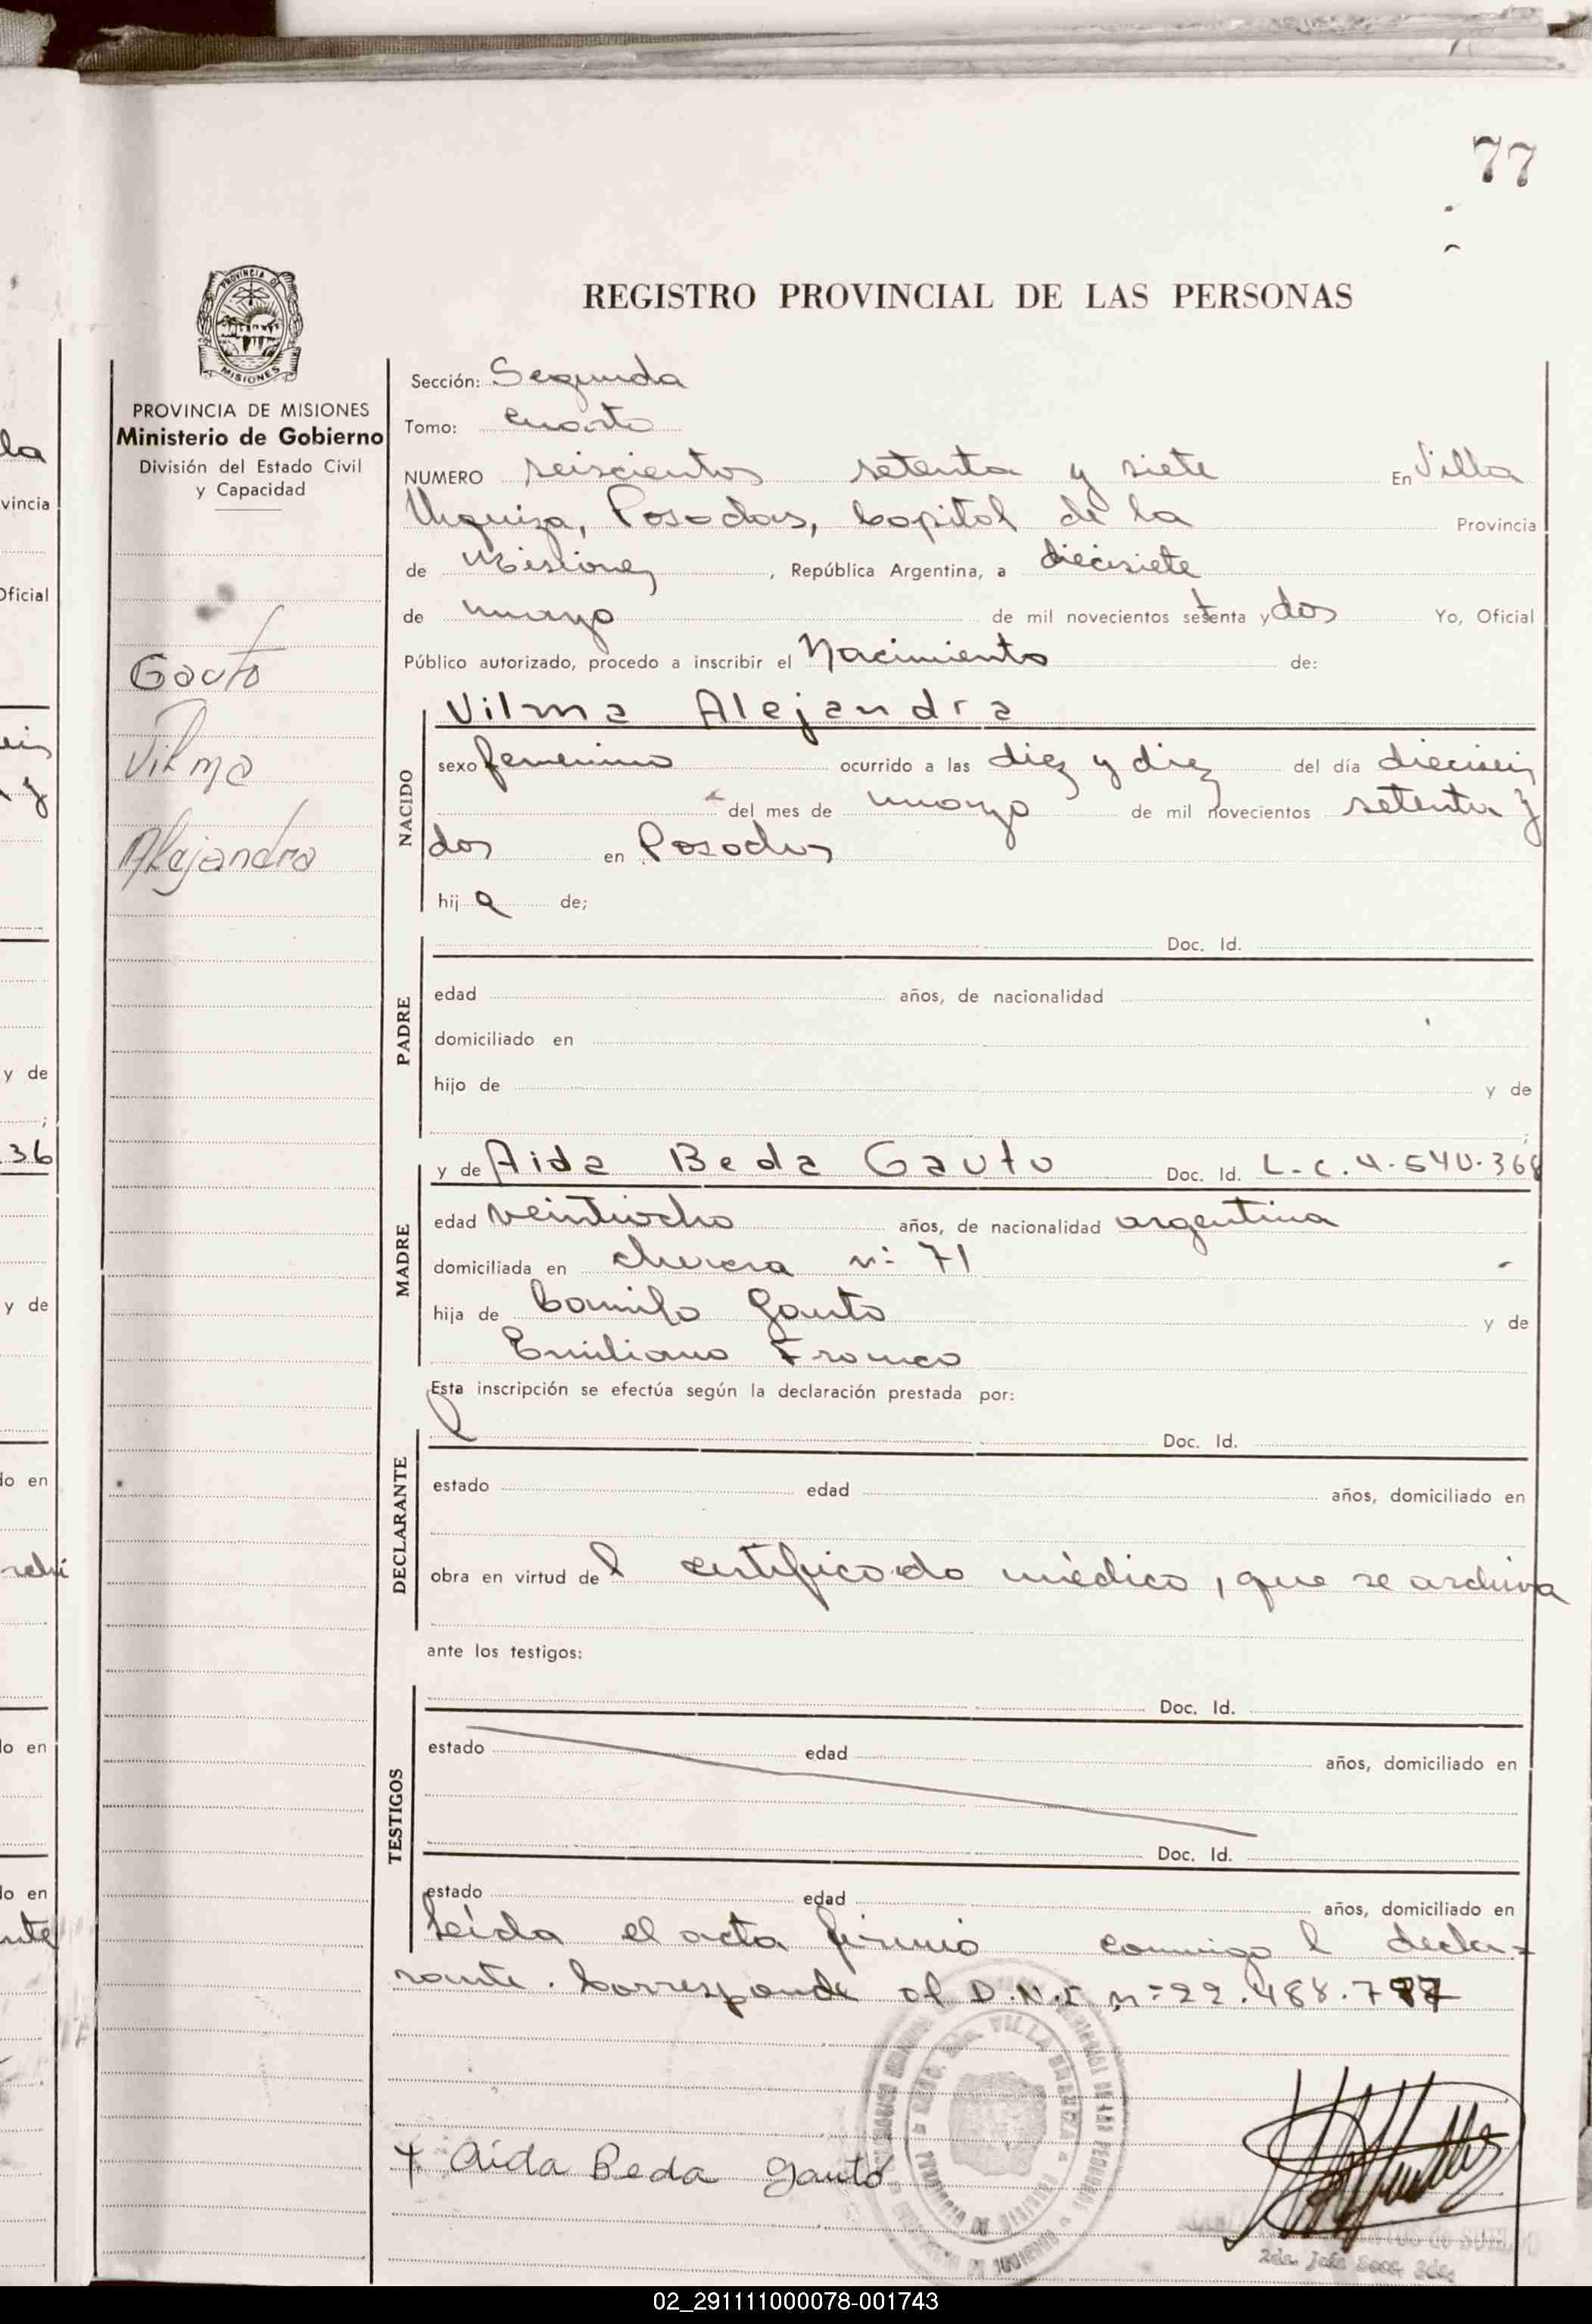 77
REGISTRO PROVINCIAL DE LAS PERSONAS
PROVINCIA DE MISIONES
Ministerio de Gobierno
División del Estado Civil
y Capacidad
Gauto
Vilma
Alejandra
Sección: Segunda
Tomo: Cuarto
NUMERO seiscientos setenta y siete En Villa
Urquiza, Posadas, Capital de la Provincia
de Misiones, República Argentina, a diecisiete
de mayo de mil novecientos setenta y dos Yo, Oficial
Público autorizado, procedo a inscribir el Nacimiento de:
NACIDO
Vilma Alejandra
sexo femenino ocurrido a las diez y diez del día dieciseis
del mes de mayo de mil novecientos setenta y
dos en Posadas
hija de;
PADRE
Doc. Id.
edad años, de nacionalidad
domiciliado en
hijo de y de
;
MADRE
y de Aida Beda Gauto Doc. Id. L.C.4.540.368
edad veintiocho años, de nacionalidad argentina
domiciliada en n: 71
hija de Camilo Gauto y de
Emiliana Franco
Esta inscripción se efectúa según la declaración prestada por:
DECLARANTE
Doc. Id.
estado edad años, domiciliado en
obra en virtud del certificado médico, que se archiva
ante los testigos:
TESTIGOS
Doc. Id.
estado edad años, domiciliado en
Doc. Id.
estado edad años, domiciliado en
Leída el acta firma conmigo l decla=
rante. Corresponde al D.N.I n=22.488.7
Aida Beda Gauto
02_291111000078-001743